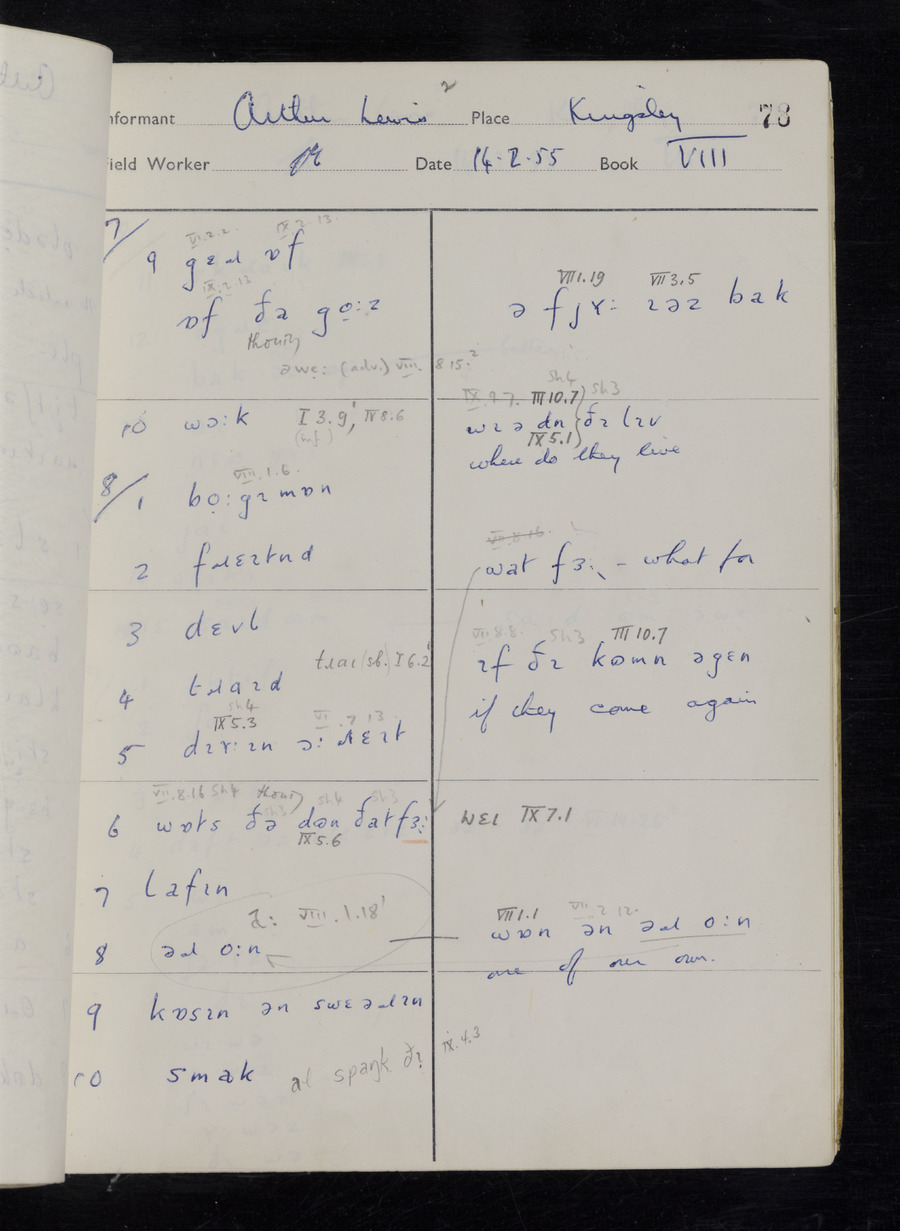 Informant Arthur Lewis 2 Place Kingsley 78
Field Worker Date 14.2.55 Book VIII
7/
VI.2.2. IX.2.13.
9 gɛɹ ɒf
IX.2.13
ɒf ðə go̤:z
thousif
əwe̤: (adv.) VIII. 8 15.²
VIII.1.19 VII 3.5
ə fjɤ: ɪəɪ bak
10 wɔ:k I 3.9', IV 8:6
(inf)
IX.9.7. III 10.7 sh4 sh3
wɪ ə dn ðɪ lɪv
IX 5.1
where do they live
8/
VIII.1.6.
1 bo̤:gɪmɒn
2 fɹɛɪtnd
VII.8.16.
wat fɜ: - what for
3 dɛvl
tɹaɪ (sb.) I 6.2'
4 tɹaɪd
VII.8.8. sh3 III 10.7
ɪf ðɪ kɷmn əgɛn
if they come again
sh4
IX 5.3 VI.7 13.
5 dɪɤ:ɪn ɔ: ɹɛɪt
VII.8.16 sh4 sh3 sh4 sh3
6 wɒts ðə dɷn ðat fɜ:
IX 5.6
wɛɪ IX 7.1
7 lafɪn
VIII.1.18'
8 əɹ o:n
VII.1.1 VII.2 12.
wɒn ən əɹ o:n
one of our own.
9 kɒsɪn ən swɛəɹɪn
10 smak al spaŋk ðɪ IX.4.3